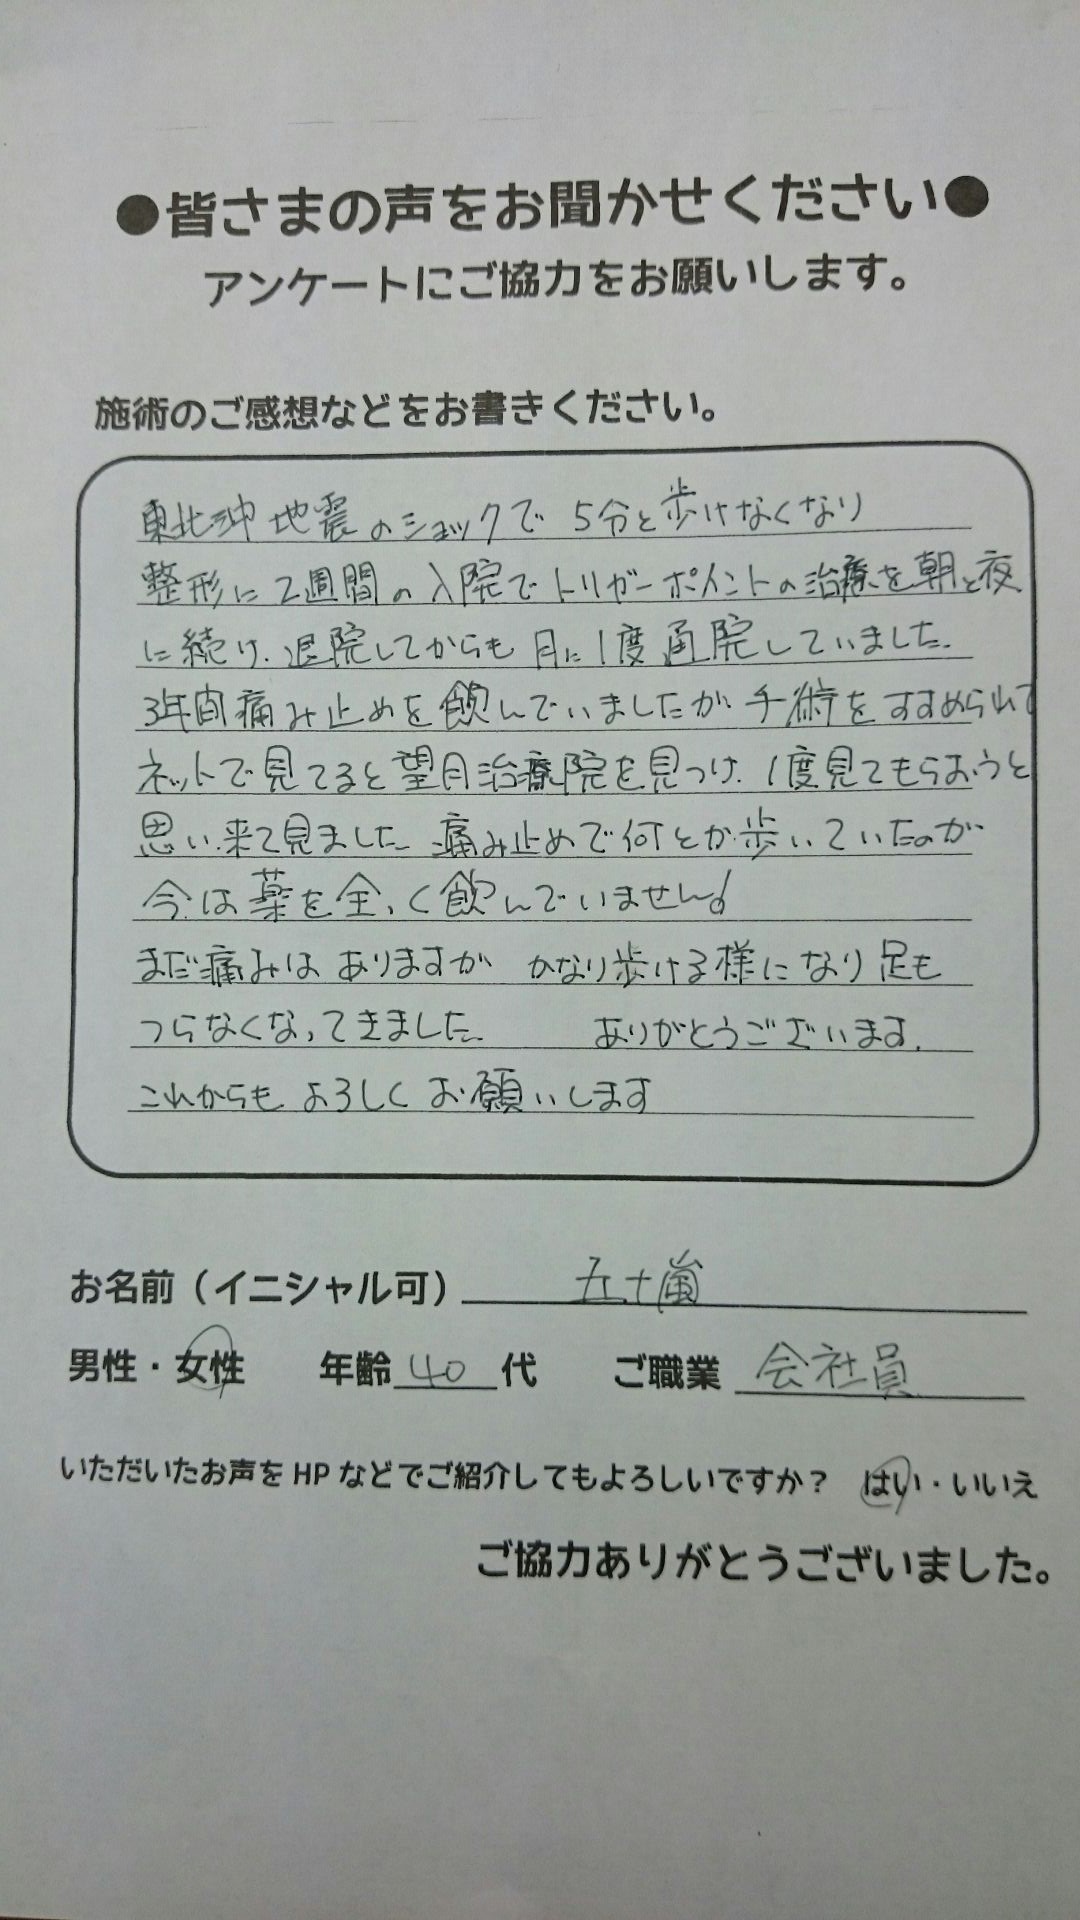 ●皆さまの声をお聞かせください●
アンケートにご協力をお願いします。
施術のご感想などをお書きください。
東北沖地震のショックで 5分と歩けなくなり
整形に2週間の入院でトリガーポイントの治療を朝と夜
に続け、退院してからも 月に1度通院していました。
3年間痛み止めを飲んでいましたが 手術をすすめられて
ネットで見てると望月治療院を見つけ、1度見てもらおうと
思い、来て見ました。痛み止めで何とか歩いていたのが
今は薬を全く飲んでいません!
まだ痛みは ありますが かなり歩ける様になり 足も
つらなくなってきました。 ありがとうございます。
これからも よろしく お願いします
お名前(イニシャル可) 五十嵐
男性・女性 年齢 40 代 ご職業 会社員
いただいたお声をHPなどでご紹介してもよろしいですか? はい・いいえ
ご協力ありがとうございました。